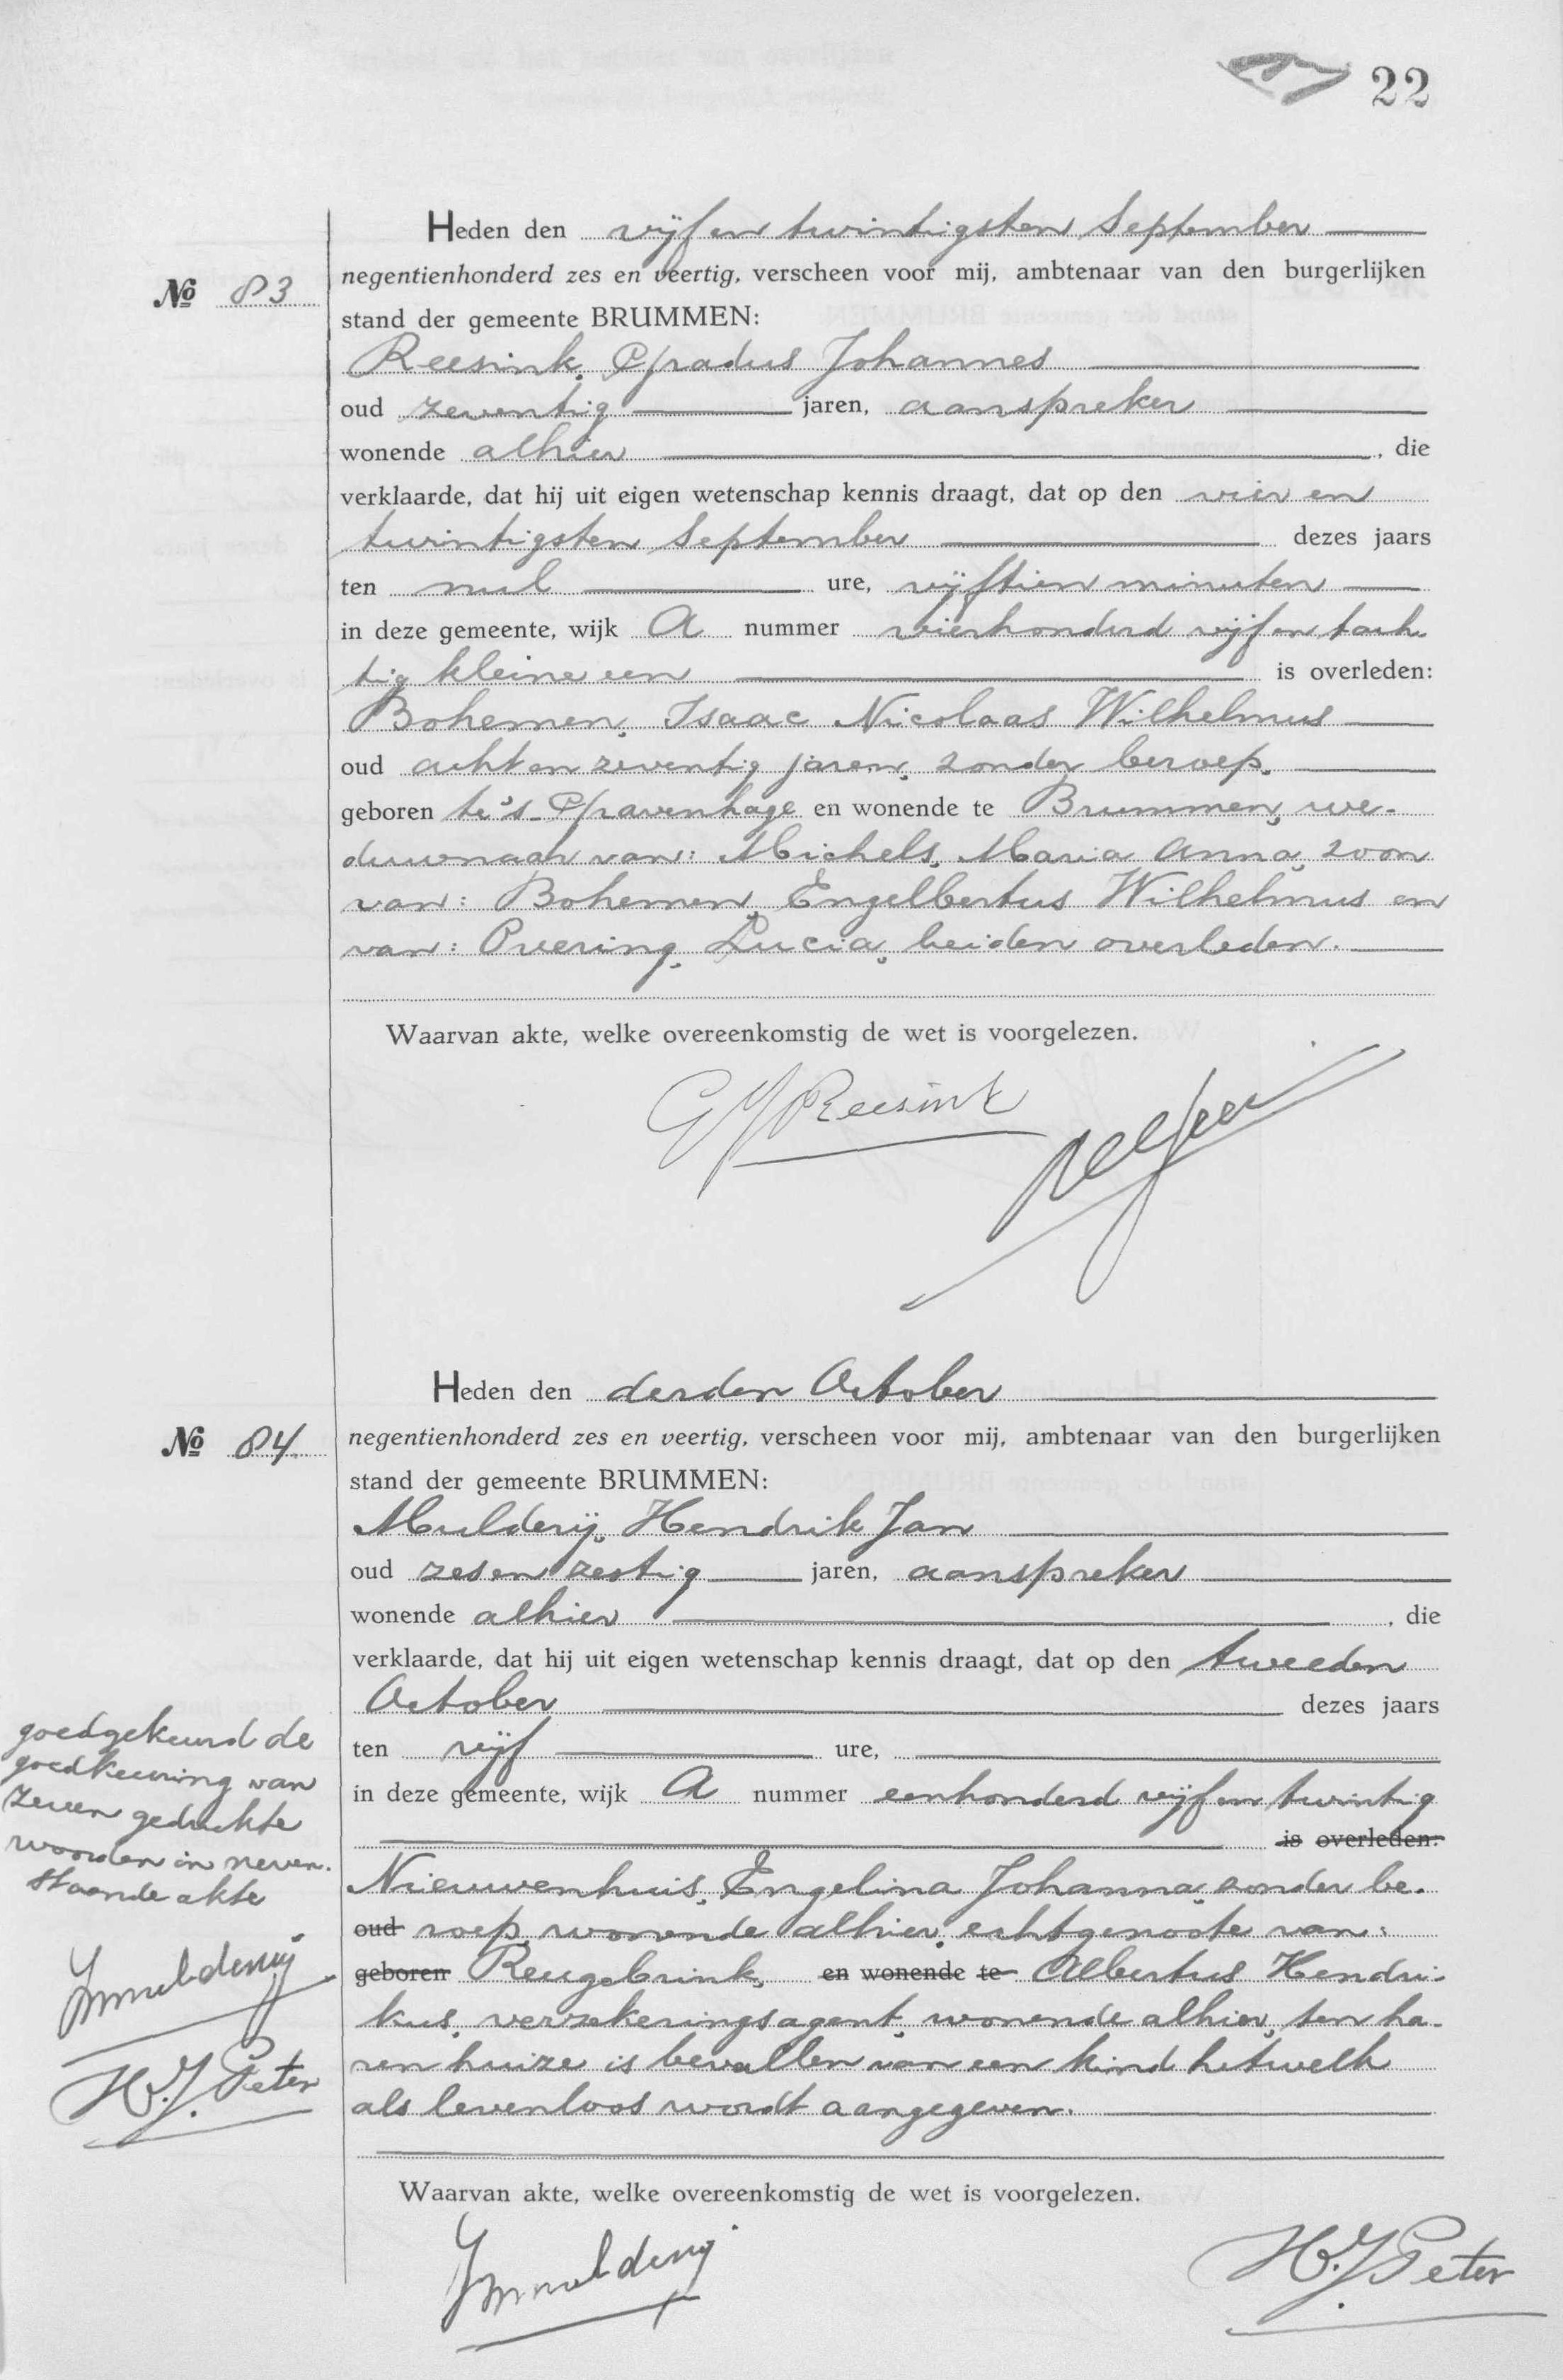 22
Heden den vijf en twintigsten September
negentienhonderd zes en veertig, verscheen voor mij, ambtenaar van den burgerlijken
No 83
stand der gemeente BRUMMEN:
Reesink, Gradus Johannes
oud zeventig jaren, aanspreker
wonende alhier, die
verklaarde, dat hij uit eigen wetenschap kennis draagt, dat op den vier en
twintigsten September dezes jaars
ten nul ure, vijftien minuten
in deze gemeente, wijk A nummer vierhonderd vijf en tach-
tig kleine een is overleden:
Bohemen, Isaac Nicolaas Wilhelmus
oud acht en zeventig jaren, zonder beroep,
geboren te 's-Gravenhage en wonende te Brummen, we-
duwnaar van: Michels, Maria Anna, zoon
van: Bohemen, Engelbertus Wilhelmus en
van: Overing, Lucia, beiden overleden.
Waarvan akte, welke overeenkomstig de wet is voorgelezen.
GJ Reesink
Heden den derden October
No 84
negentienhonderd zes en veertig, verscheen voor mij, ambtenaar van den burgerlijken
stand der gemeente BRUMMEN:
Mulderij, Hendrik Jan
oud zes en zestig jaren, aanspreker
wonende alhier, die
verklaarde, dat hij uit eigen wetenschap kennis draagt, dat op den tweeden
October dezes jaars
ten vijf ure,
in deze gemeente, wijk A nummer eenhonderd vijf en twintig
is overleden:
Nieuwenhuis, Engelina Johanna, zonder be-
oud roep, wonende alhier, echtgenoote van:
geboren Reugebrink, en wonende te Albertus Hendri-
kus, verzekeringsagent, wonende alhier, ten ha-
ren huize is bevallen van een kind hetwelk
als levenloos wordt aangegeven.
goedgekeurd de
goedkeuring van
zeven gedrukte
woorden in neven-
staande akte
HJMulderij
H.J. Peter
Waarvan akte, welke overeenkomstig de wet is voorgelezen.
HJMulderij
H.J. Peter